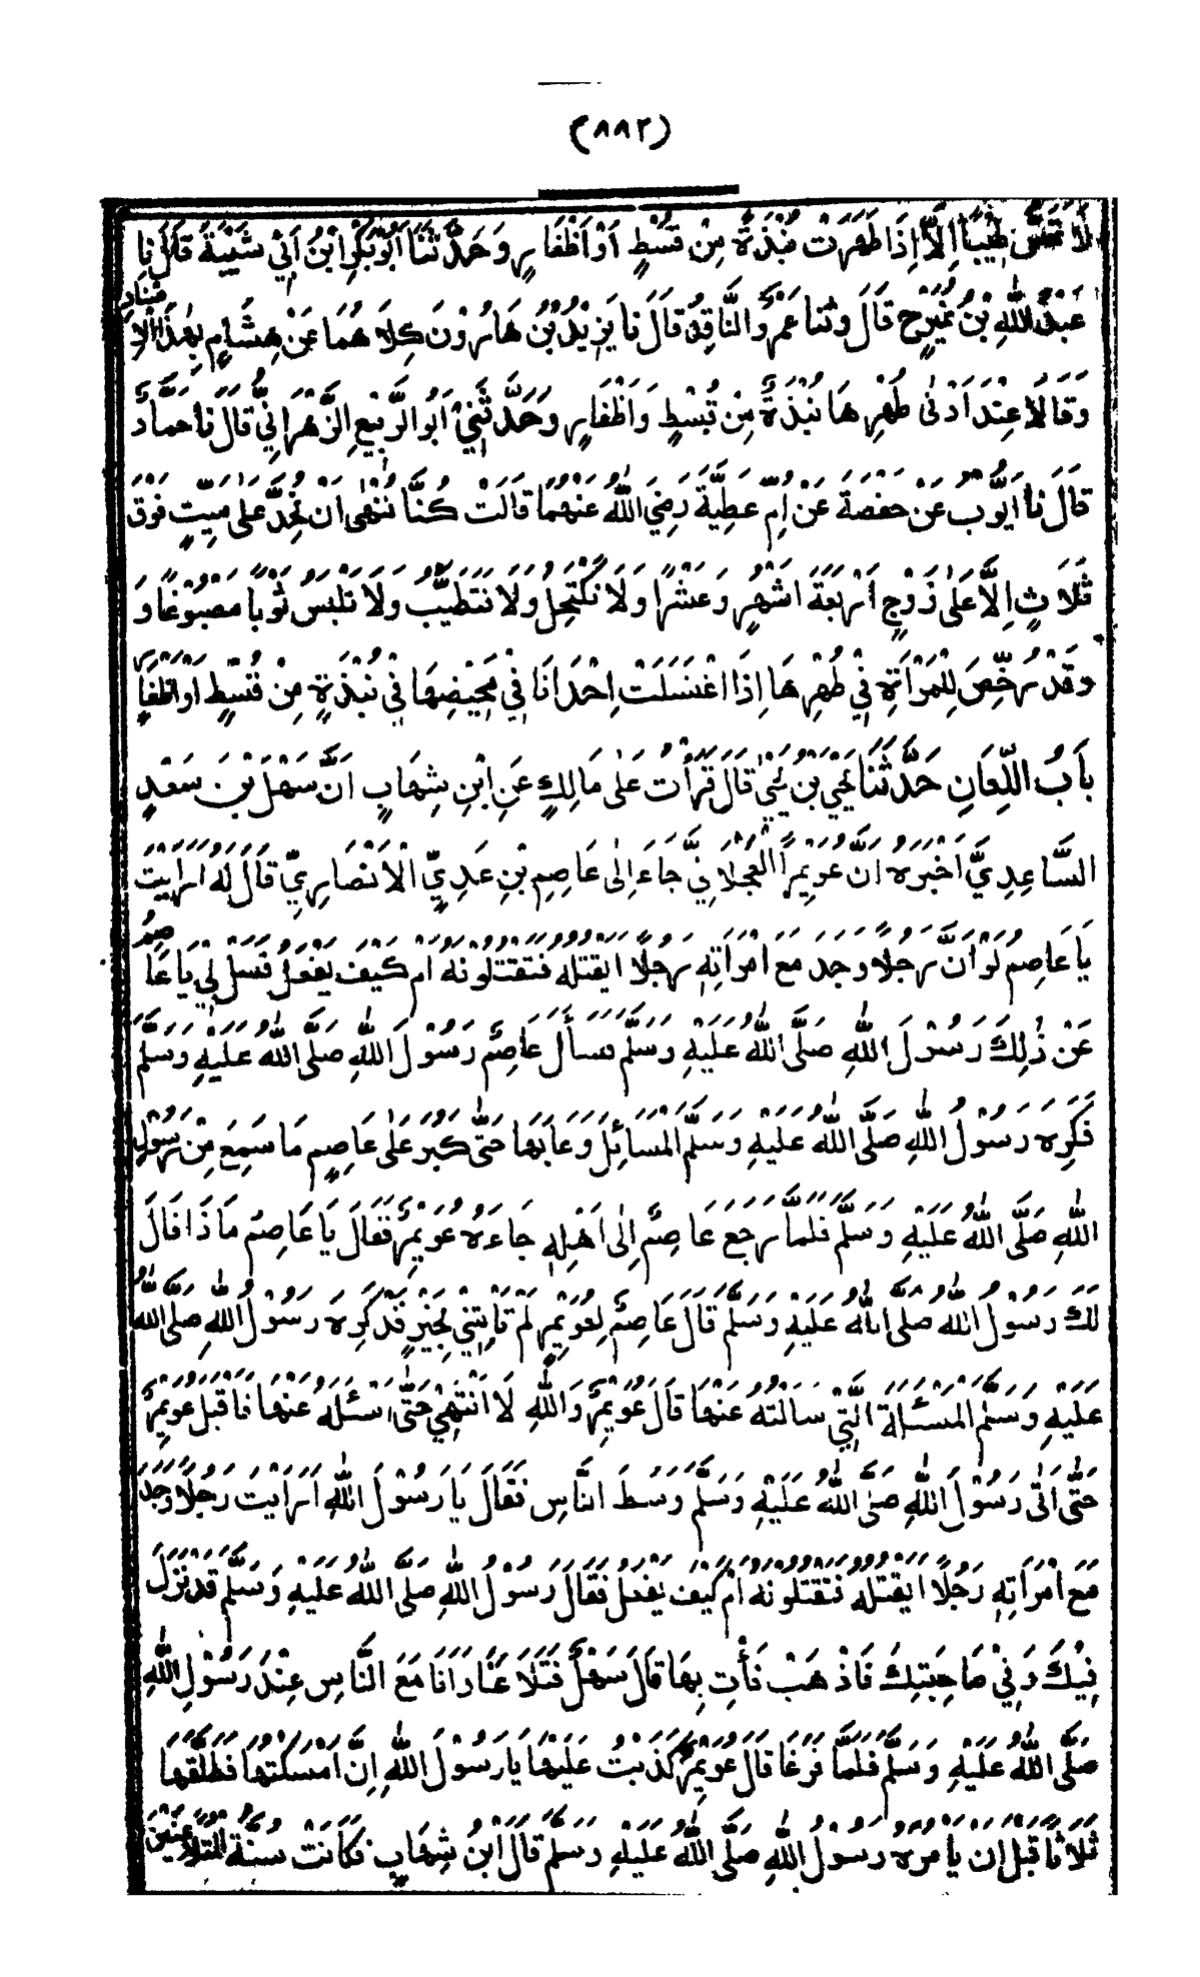 (٨٨٢)
لَا تَمَسُّ طِيْبًا اِلَّا اِذَا طَهَرَتْ نُبْذَةً مِنْ قُسْطٍ اَوْ اَظْفَارٍ وَحَدَّثَنَا اَبُوْ بَكْرِ ابْنُ اَبِيْ شَيْبَةَ قَالَ نَا
عَبْدُ اللّٰهِ بْنُ نُمَيْرٍ ح قَالَ وثنا عَمْرٌو النَّاقِدُ قَالَ نا يَزِيْدُ بْنُ هَارُوْنَ كِلَاهُمَا عَنْ هِشَامٍ بِهٰذَا الْاِسْنَادِ
وَقَالَا عِنْدَ اَدْنٰى طُهْرِهَا نُبْذَةً مِنْ قُسْطٍ وَاَظْفَارٍ وَحَدَّثَنِيْ اَبُو الرَّبِيْعِ الزَّهْرَانِيُّ قَالَ نَا حَمَّادٌ
قَالَ نا اَيُّوْبُ عَنْ حَفْصَةَ عَنْ اُمِّ عَطِيَّةَ رَضِيَ اللّٰهُ عَنْهُمَا قَالَتْ كُنَّا نُنْهٰى اَنْ نُحِدَّ عَلٰى مَيِّتٍ فَوْقَ
ثَلَاثٍ اِلَّا عَلٰى زَوْجٍ اَرْبَعَةَ اَشْهُرٍ وَعَشْرًا وَلَا نَكْتَحِلُ وَلَا نَتَطَيَّبُ وَلَا نَلْبَسُ ثَوْبًا مَصْبُوْغًا وَ
وَقَدْ رُخِّصَ لِلْمَرْاَةِ فِيْ طُهْرِهَا اِذَا اغْتَسَلَتْ اِحْدَانَا فِيْ مَحِيْضِهَا فِيْ نُبْذَةٍ مِنْ قُسْطٍ اَوْ اَظْفَارٍ
بَابُ اللِّعَانِ حَدَّثَنَا يَحْيَ بْنُ يَحْيٰ قَالَ قَرَأْتُ عَلٰى مَالِكٍ عَنِ ابْنِ شِهَابٍ اَنَّ سَهْلَ بْنَ سَعْدٍ
السَّاعِدِيَّ اَخْبَرَهُ اَنَّ عُوَيْمِرًا الْعَجْلَانِيَّ جَاءَ اِلٰى عَاصِمِ بْنِ عَدِيٍّ الْاَنْصَارِيِّ قَالَ لَهُ اَرَاَيْتَ
يَا عَاصِمُ لَوْ اَنَّ رَجُلًا وَجَدَ مَعَ امْرَاَتِهٖ رَجُلًا اَيَقْتُلُهُ فَتَقْتُلُوْنَهُ اَمْ كَيْفَ يَفْعَلُ فَسَلْ لِيْ يَا عَاصِمُ
عَنْ ذٰلِكَ رَسُوْلَ اللّٰهِ صَلَّى اللّٰهُ عَلَيْهِ وَسَلَّمَ فَسَأَلَ عَاصِمٌ رَسُوْلَ اللّٰهِ صَلَّى اللّٰهُ عَلَيْهِ وَسَلَّمَ
فَكَرِهَ رَسُوْلُ اللّٰهِ صَلَّى اللّٰهُ عَلَيْهِ وَسَلَّمَ الْمَسَائِلَ وَعَابَهَا حَتّٰى كَبُرَ عَلٰى عَاصِمٍ مَا سَمِعَ مِنْ رَسُوْلِ
اللّٰهِ صَلَّى اللّٰهُ عَلَيْهِ وَسَلَّمَ فَلَمَّا رَجَعَ عَاصِمٌ اِلٰى اَهْلِهٖ جَاءَهُ عُوَيْمِرٌ فَقَالَ يَا عَاصِمُ مَاذَا قَالَ
لَكَ رَسُوْلُ اللّٰهِ صَلَّى اللّٰهُ عَلَيْهِ وَسَلَّمَ قَالَ عَاصِمٌ لِعُوَيْمِرٍ لَمْ تَاْتِنِيْ بِخَيْرٍ قَدْ كَرِهَ رَسُوْلُ اللّٰهِ صَلَّى اللّٰهُ
عَلَيْهِ وَسَلَّمَ الْمَسْئَلَةَ الَّتِيْ سَاَلْتُهُ عَنْهَا قَالَ عُوَيْمِرٌ وَاللّٰهِ لَا اَنْتَهِيْ حَتّٰى اَسْئَلَهُ عَنْهَا فَاَقْبَلَ عُوَيْمِرٌ
حَتّٰى اَتٰى رَسُوْلَ اللّٰهِ صَلَّى اللّٰهُ عَلَيْهِ وَسَلَّمَ وَسَطَ النَّاسِ فَقَالَ يَا رَسُوْلَ اللّٰهِ اَرَاَيْتَ رَجُلًا وَجَدَ
مَعَ امْرَاَتِهٖ رَجُلًا اَيَقْتُلُهُ فَتَقْتُلُوْنَهُ اَمْ كَيْفَ يَفْعَلُ فَقَالَ رَسُوْلُ اللّٰهِ صَلَّى اللّٰهُ عَلَيْهِ وَسَلَّمَ قَدْ نَزَلَ
فِيْكَ وَفِيْ صَاحِبَتِكَ فَاذْهَبْ فَأْتِ بِهَا قَالَ سَهْلٌ فَتَلَاعَنَا وَاَنَا مَعَ النَّاسِ عِنْدَ رَسُوْلِ اللّٰهِ
صَلَّى اللّٰهُ عَلَيْهِ وَسَلَّمَ فَلَمَّا فَرَغَا قَالَ عُوَيْمِرٌ كَذَبْتُ عَلَيْهَا يَا رَسُوْلَ اللّٰهِ اِنْ اَمْسَكْتُهَا فَطَلَّقَهَا
ثَلَاثًا قَبْلَ اَنْ يَأْمُرَهُ رَسُوْلُ اللّٰهِ صَلَّى اللّٰهُ عَلَيْهِ وَسَلَّمَ قَالَ ابْنُ شِهَابٍ فَكَانَتْ سُنَّةُ الْمُتَلَاعِنَيْنِ